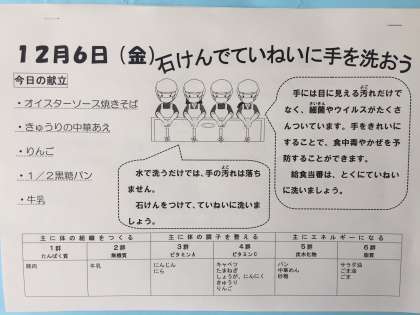 12月6日(金)石けんでていねいに手を洗おう
今日の献立
・オイスターソース焼きそば
・きゅうりの中華あえ
・りんご
・1/2黒糖パン
・牛乳
手には目に見える汚れだけで
なく、細菌やウイルスがたくさ
んついています。手をきれいに
することで、食中毒やかぜを予
防することができます。
給食当番は、とくにていねい
に洗いましょう。
水で洗うだけでは、手の汚れは落ち
ません。
石けんをつけて、ていねいに洗いま
しょう。
主に体の組織をつくる 主に体の調子を整える 主にエネルギーになる
1群 2群 3群 4群 5群 6群
たんぱく質 無機質 ビタミンA ビタミンC 炭水化物 脂質
豚肉 牛乳 にんじん キャベツ パン サラダ油
にら たまねぎ 中華めん ごま油
しょうが、にんにく 砂糖 ごま
きゅうり
りんご